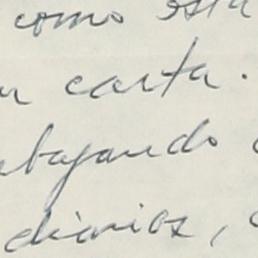 como esta
carta.
bajando
diarios,